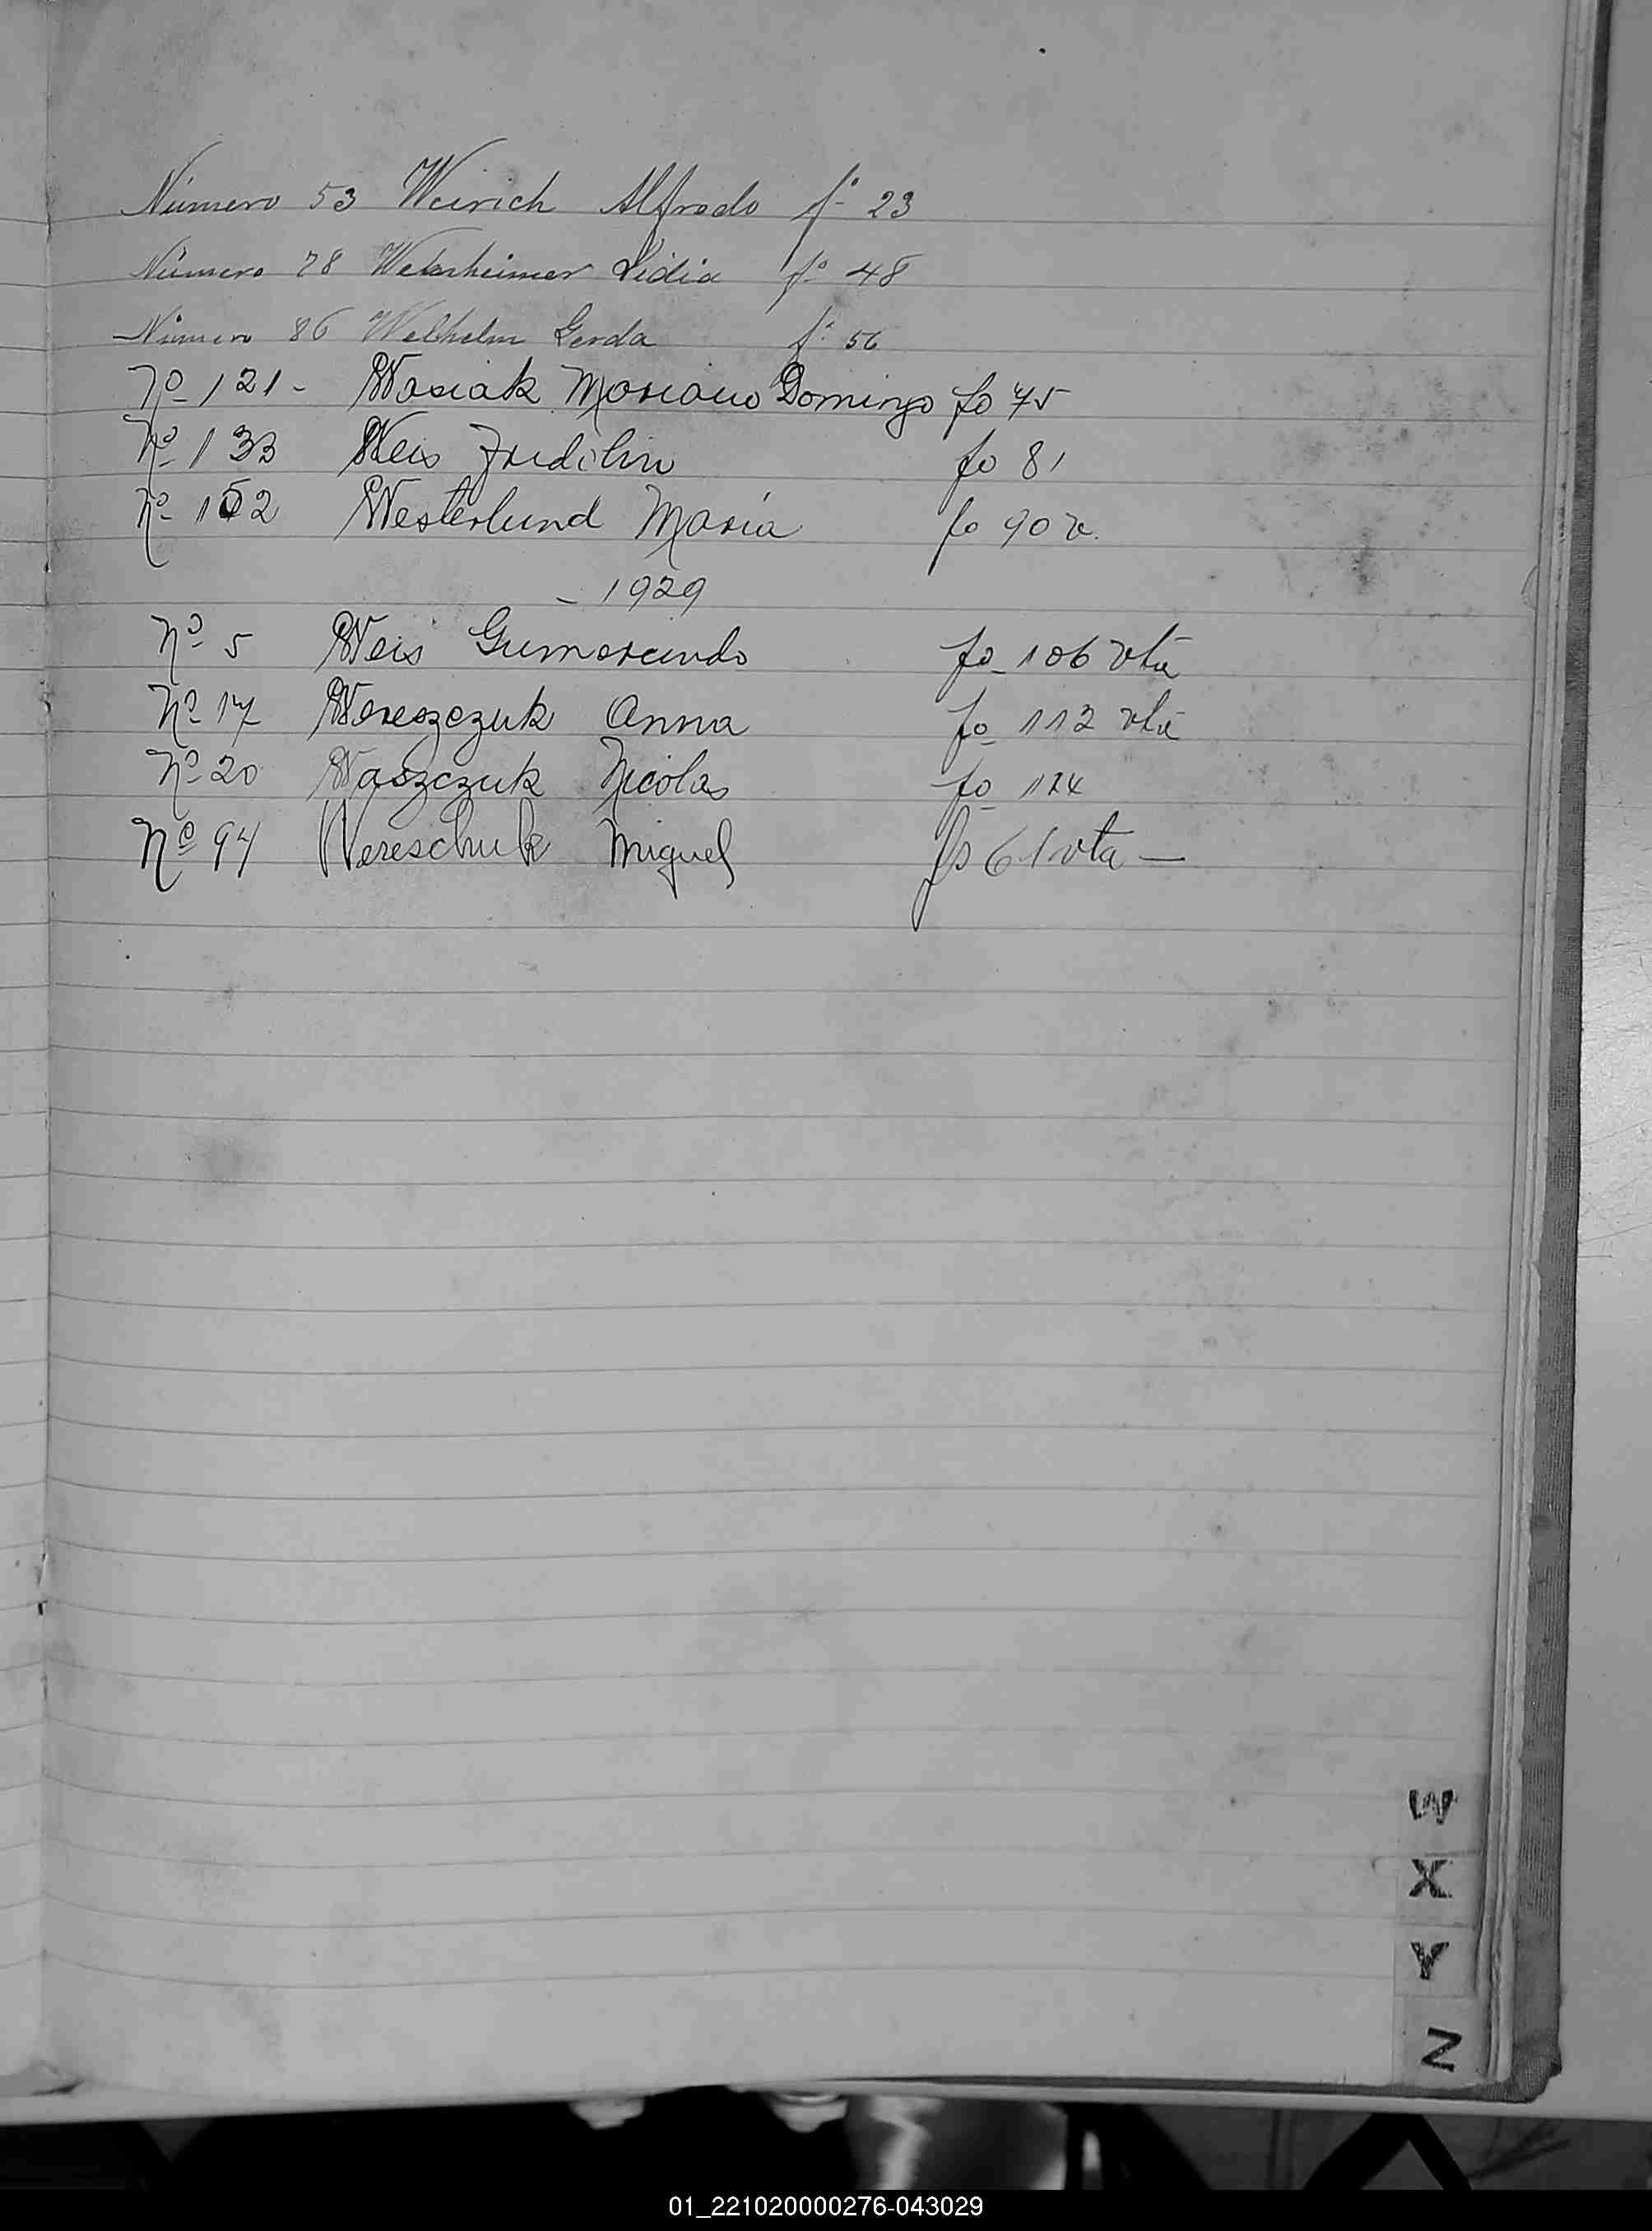 Número 53 Weirich Alfredo fº 23
Número 78 Lidia fº 48
Número 86 Welhelm Gerda fº 56
Nº 121- Wasiak Mariano Domingo fo 75
Nº 133 Weis Fridolin fo 81
Nº 152 Westerlund María fo 90 v.
- 1929
Nº 5 Weis Gumercindo fo 106 vta
Nº 17 Wereszczuk Anna fo 112 vta
Nº 20 Waszczuk Nicolas fo 114
Nº 94 Wereschuk Miguel fs 61 vta —
W
X
Y
Z
01_221020000276-043029